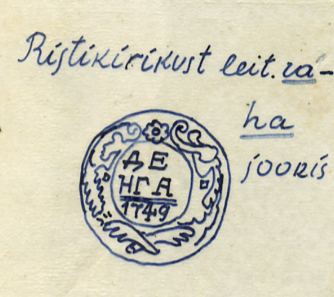 Ristikirikust leit. ra-
ha
joonis
ДЕ
НГА
1749